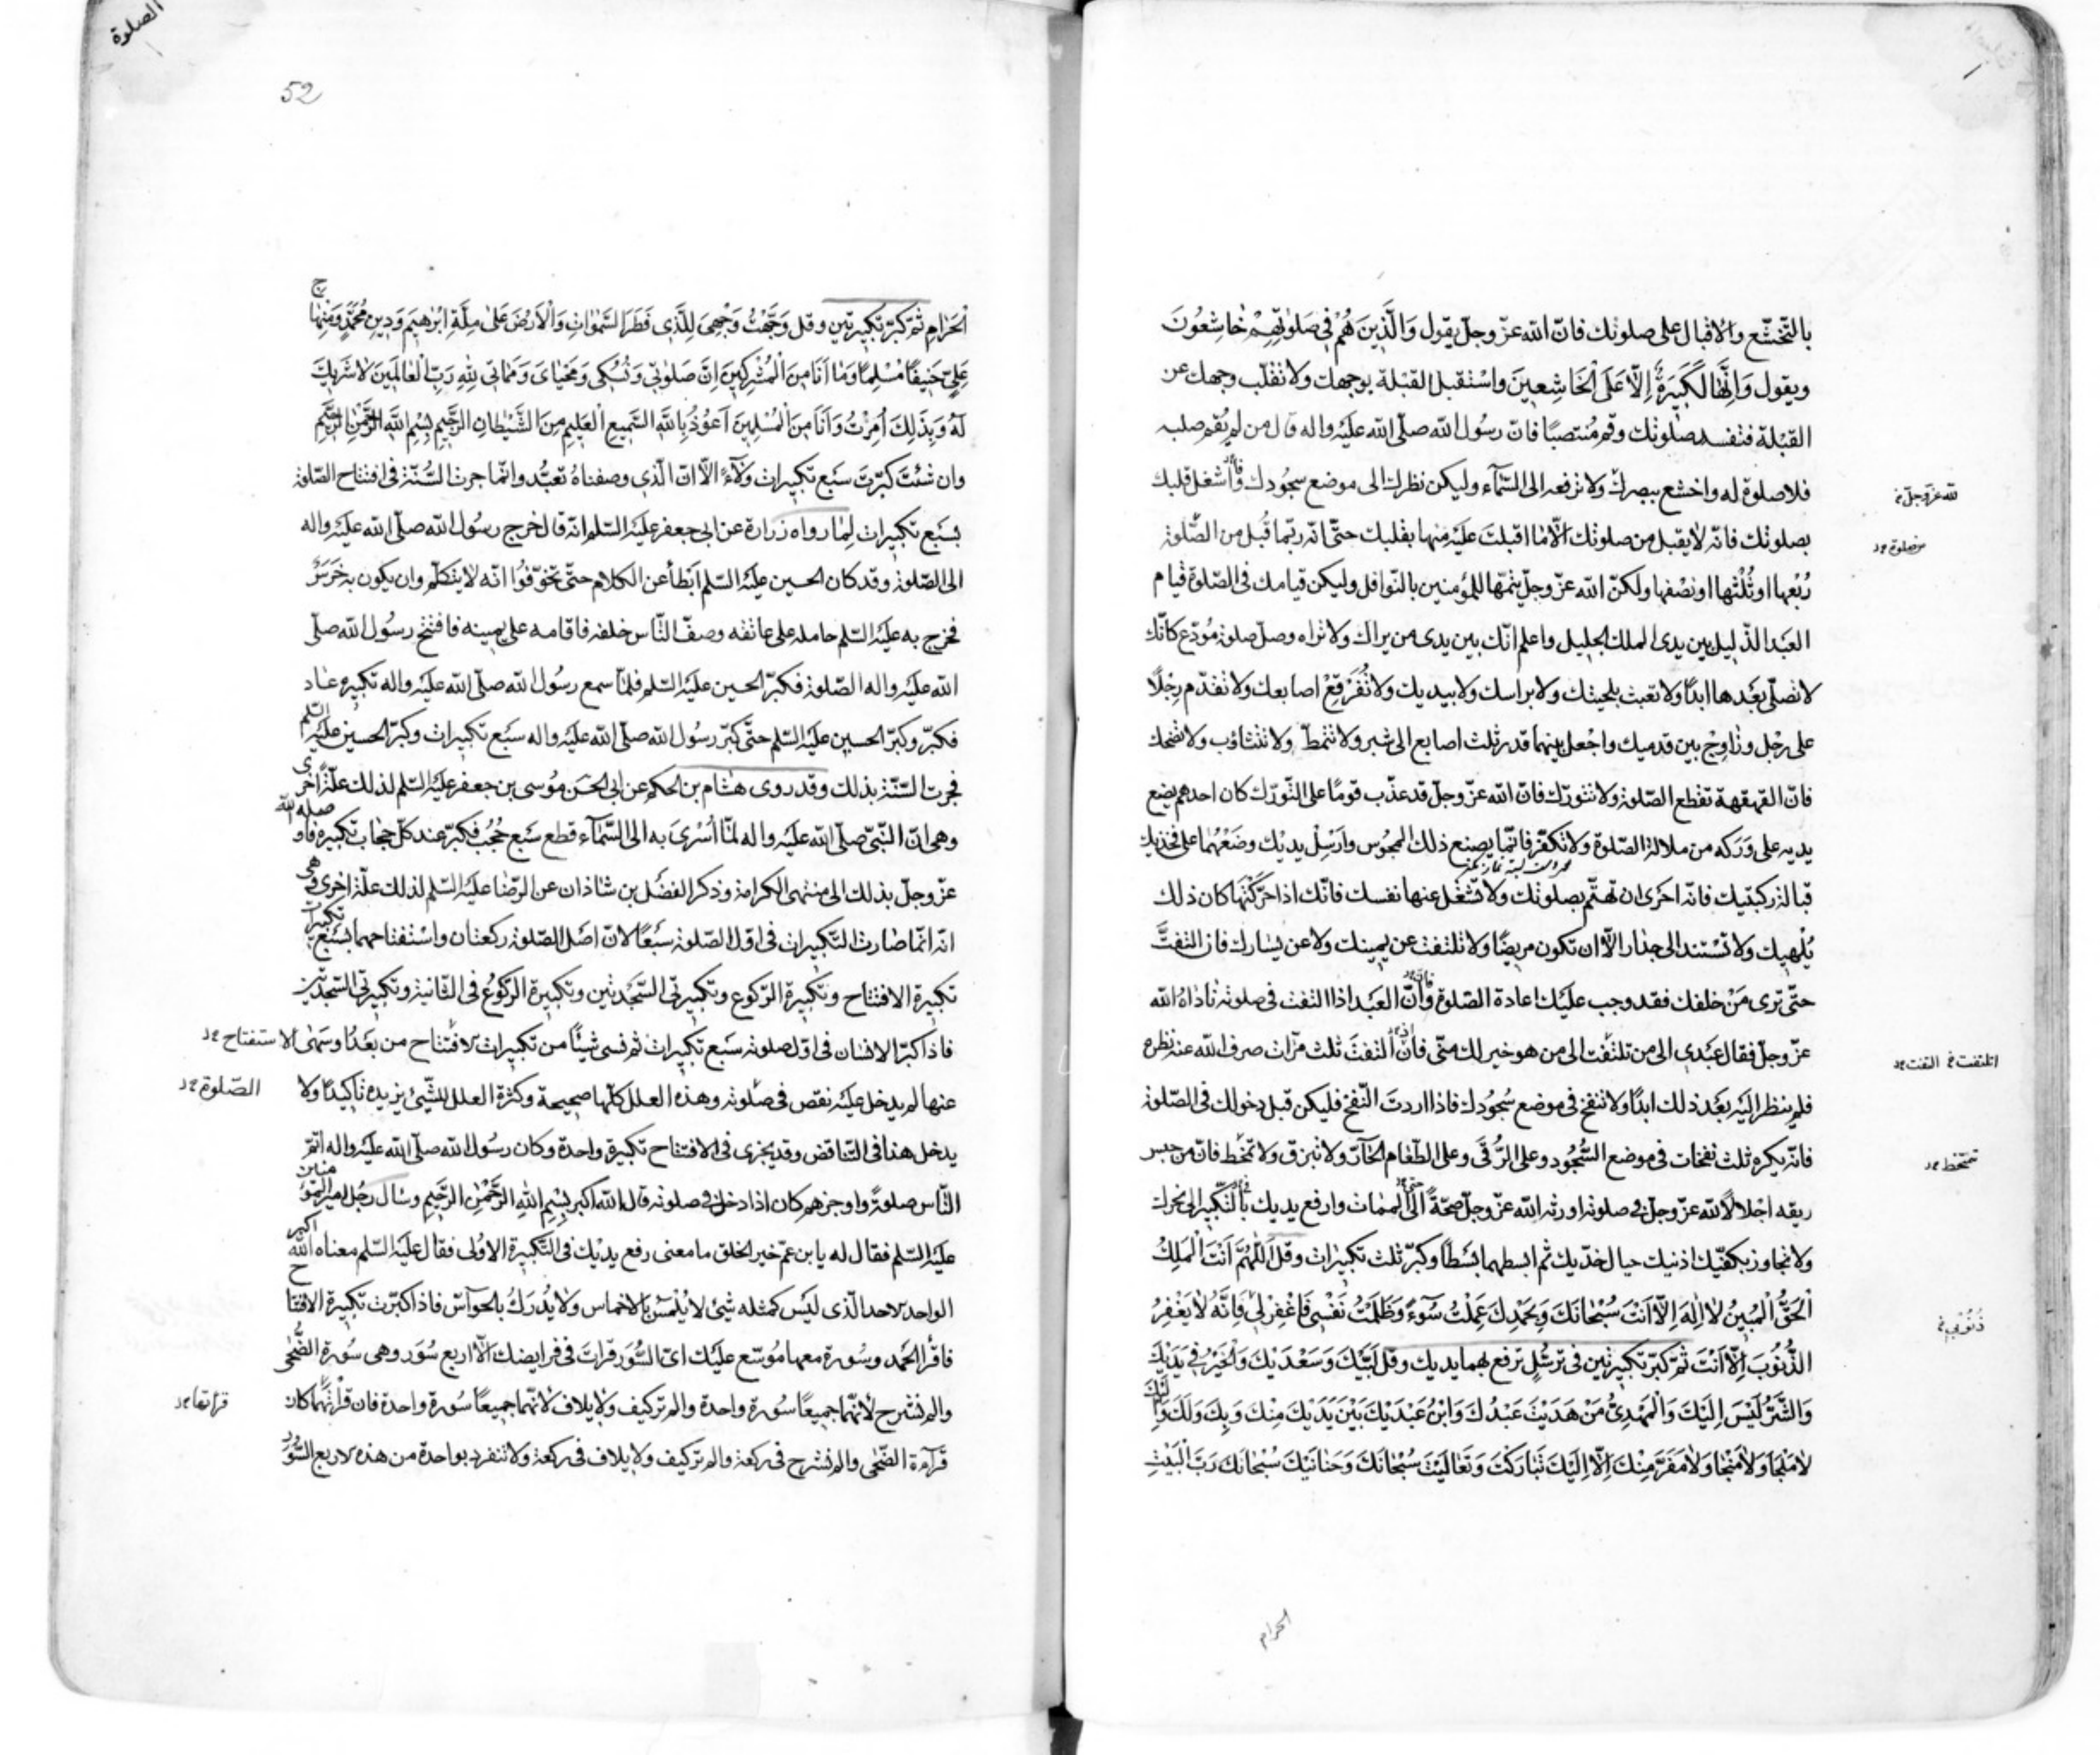 بالتّخشّع والاقبال على صلوتك فانّ الله عزّ وجلّ يقول وَالَّذِينَ هُمْ فِي صَلوٰتِهِمْ خَاشِعُونَ
ويقول وَاِنَّهَا لَكَبِيرَةٌ اِلَّا عَلَى الْخَاشِعِينَ واسْتقبل القبْلة بوجهك ولا تقلّب وجهك عن
القبْلة فتفسد صلوتك وقم مُنتصبًا فانّ رسول الله صلّى الله عليْه واله قال من لم يُقم صلبه
فلا صلوة له واخشع ببصرك ولا ترفعه الى السّمآء وليكن نظرك الى موضع سجُودك وأشغل قلبك
لله عزّ وجلّ
بصلوتك فانّه لا يقبل من صلوتك الّا ما اقبلت عليْه منها بقلبك حتّى انّه ربّما قُبل من الصّلوة
من صلوة
رُبْعها او ثُلْثها او نصْفها ولكنّ الله عزّ وجلّ يتمّها للمؤمنين بالنّوافل وليكن قيامك فى الصّلوة قيام
العبْد الذّليل بين يدى الملك الجليل واعلم انّك بين يدى من يراك ولا تراه وصلّ صلوة مُودّع كانّك
لا تصلّى بعْدها ابدًا ولا تعبث بلحيتك ولا براسك ولا بيديك ولا تُفَرقِعْ اصابعك ولا تقدّم رِجلًا
على رجْل وزاوِجْ بين قدميك واجْعل بينهما قدر ثلث اصابع الى شبر ولا تتمطّ ولا تتثاوب ولا تضحك
فانّ القهقهة تقطع الصّلوة ولا تتورّك فانّ الله عزّ وجلّ قد عذّب قومًا على التّورّك كان احدهم يضع
يديه على وَرَكه من ملالة الصّلوة ولا تكفّر فانّما يصنع ذلك المجُوس وارْسِلْ يديْك وضَعْهُما على فخذيك
قبالة ركبتيك فانّه احَرى ان تهتمّ بصلوتك ولا تَشْغل عنها نفسك فانّك اذا حرّكتَها كان ذلك
يُلْهيك ولا تسْتند الى جدار الّا ان تكون مريضًا ولا تلتفت عن يمينك ولا عن يسارك فان التفتَّ
حتّى ترى مَنْ خلفك فقد وجب عليْك اعادة الصّلوة وانّ العبْد اذا التفت فى صلوته ناداهُ الله
عزّ وجلّ فقال عبْدى الى من تلتفت الى من هو خير لك منّى فانْ التفتَ ثلث مرّات صرف الله عنه نظره
اتلتفت التفت
فلم ينظر اليْه بعْد ذلك ابدًا ولا تنفخ فى موضع سُجُودك فاذا اردتَ النّفخ فليكن قبل دخولك فى الصّلوة
فانّه يكره ثلث نفخات فى موضع السُّجُود وعلى الرُّقَى وعلى الطّعام الحَآرّ ولا تبزق ولا تمخّط فانّ من حبس
تتمخّط
ريقه اجْلالًا لله عزّ وجلّ فى صلوته اورثه الله عزّ وجلّ صحّةً الى الممات وارفع يديك بالتّكبير الى نحرك
ولا تجاوز بكفّيك اذنيك حيال خدّيك ثم ابسطهما بَسْطًا وكبّر ثلث تكبيرات وقل اَللّٰهُمَّ اَنْتَ الْمَلِكُ
الْحَقُّ الْمُبِينُ لَا اِلٰهَ اِلَّا اَنْتَ سُبْحَانَكَ وَبِحَمْدِكَ عَمِلْتُ سُوءً وَظَلَمْتُ نَفْسِى فَاغْفِرْ لِى فَاِنَّهُ لَا يَغْفِرُ
ذُنُوبِى
الذُّنُوبَ اِلَّا اَنْتَ ثمّ كبّر تكبيرتين فى ترسُّلٍ ترفع بهما يديك وقل لَبَّيْكَ وَسَعْدَيْكَ وَالْخَيْرُ فِى يَدَيْكَ
وَالشَّرُّ لَيْسَ اِلَيْكَ وَالْمَهْدِىُّ مَنْ هَدَيْتَ عَبْدُكَ وَابْنُ عَبْدَيْكَ بَيْنَ يَدَيْكَ مِنْكَ وَبِكَ وَلَكَ وَاِلَيْكَ
لَا مَلْجَاَ وَلَا مَنْجَا وَلَا مَفَرَّ مِنْكَ اِلَّا اِلَيْكَ تَبَارَكْتَ وَتَعَالَيْتَ سُبْحَانَكَ وَحَنَانَيْكَ سُبْحَانَكَ رَبَّ الْبَيْتِ
الحرام
الصلوة
52
الْحَرَامِ ثمّ كبّر تكبيرتين وقل وَجَّهْتُ وَجْهِىَ لِلَّذِى فَطَرَ السَّمٰوَاتِ وَالْاَرْضَ عَلٰى مِلَّةِ اِبْرٰهِيمَ وَدِينِ مُحَمَّدٍ وَمِنْهَاجِ
عَلِىٍّ حَنِيفًا مُسْلِمًا وَمَا اَنَا مِنَ الْمُشْرِكِينَ اِنَّ صَلوٰتِى وَنُسُكِى وَمَحْيَاىَ وَمَمَاتِى لِلّٰهِ رَبِّ الْعَالَمِينَ لَا شَرِيكَ
لَهُ وَبِذٰلِكَ اُمِرْتُ وَاَنَا مِنَ الْمُسْلِمِينَ اَعُوذُ بِاللهِ السَّمِيعِ الْعَلِيمِ مِنَ الشَّيْطَانِ الرَّجِيمِ بِسْمِ اللهِ الرَّحْمٰنِ الرَّحِيمِ
وان شئتَ كبّرتَ سبْع تكبيرات ولآءً الّا انّ الّذى وصفناهُ تعبُّد وانّما جرت السُّنّة فى افتتاح الصّلوة
بسَبْع تكبيرات لِما رواه زرارة عن ابى جعفر عليْه السّلم انّه قال خرج رسول الله صلّى الله عليْه واله
الى الصّلوة وقد كان الحسين عليْه السّلم ابْطأ عن الكلام حتّى تخوّفُوا انّه لا يتكلّم وان يكون به خَرَسٌ
فخرج به عليْه السّلم حامله على عاتقه وصفّ النّاس خلفه فاقامه على يمينه فافتتح رسُول الله صلّى
الله عليْه واله الصّلوة فكبّر الحسين عليْه السّلم فلمّا سمع رسُول الله صلّى الله عليْه واله تكبيره عاد
فكبّر وكبّر الحسين عليْه السّلم حتّى كبّر رسُول الله صلّى الله عليْه واله سبْع تكبيرات وكبّر الحسين عليْه السّلم
فجرت السّنّة بذلك وقد روى هشام بن الحكم عن ابى الحسَن مُوسى بن جعفر عليْه السّلم لذلك علّةً اخرى
وهى انّ النّبىّ صلّى الله عليْه واله لمّا اُسْرِىَ به الى السّمآء قطع سَبْع حُجُب فكبّر عند كلّ حجاب تكبيرة فاوصله الله
عزّ وجلّ بذلك الى منتهى الكرامة وذكر الفضْل بن شاذان عن الرّضا عليْه السّلم لذلك علّة اخرى وهى
انّه انّما صارت التّكبيرات فى اوّل الصّلوة سَبْعًا لانّ اصْل الصّلوة ركعتان واسْتفتاحهما بسَبْع تكبيرات
تكبيرة الافتتاح وتكبيرة الرّكوع وتكبيرتى السّجْدتين وتكبيرة الرّكوعُ فى الثّانية وتكبيرتى السّجدتين
فاذا كبّر الانسان فى اوّل صلوته سَبْع تكبيرات ثم نسى شيئًا من تكبيرات الافتتاح من بعْدُ او سَهٰى
الاستفتاح
عنها لم يدخل عليْه نقص فى صلوته وهذه العلل كلّها صحيحة وكثرة العلل للشّىء يزيده تاكيدًا ولا
الصّلوة
يدخل هذا فى التّناقض وقد يجزى فى الافتتاح تكبيرة واحدة وكان رسُول الله صلّى الله عليْه واله اتمّ
النّاس صلوةً واوجزهم كان اذا دخل فى صلوته قال الله اكبر بِسْمِ اللهِ الرَّحْمٰنِ الرَّحِيمِ وسال رجُل امير المؤمنين
عليْه السّلم فقال له يا بن عمّ خير الخلق ما معنى رفع يديْك فى التّكبيرة الاُولى فقال عليْه السّلم معناه الله اكبر
الواحد الاحد الّذى ليْس كمثله شىء لا يُلْمَسُ بالاخماس ولا يُدْرَكُ بالحوآسّ فاذا كبّرت تكبيرة الافتتاح
فاقْرأ الحمْد وسُورة معها مُوسّع عليْك اىّ السُّوَر قرات فى فرايضك الّا اربع سُوَر وهى سُورة الضُّحٰى
والم نشرح لأنّهما جميعًا سُورة واحدة والم تر كيف ولايلاف لانّهما جميعًا سُورة واحدة فان قرأتهما كان
قراتها
قرآءة الضّحٰى والم نشرح فى ركعة والم تر كيف ولايلاف فى ركعة ولا تنفرد بواحدة من هذه الاربع السُّوَر